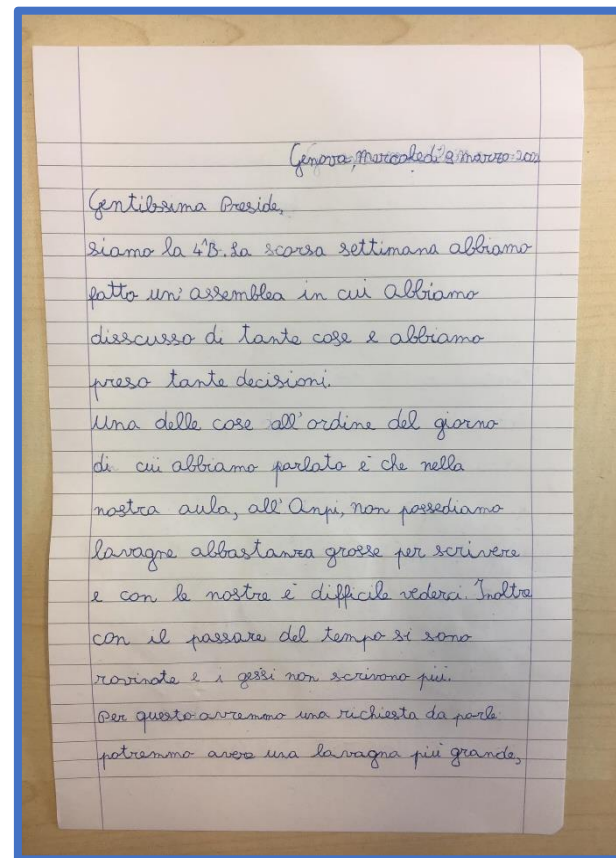 Genova, Mercoledì 9 marzo 202
Gentilissima Preside,
siamo la 4^B. La scorsa settimana abbiamo
fatto un' assemblea in cui abbiamo
disscusso di tante cose e abbiamo
preso tante decisioni.
Una delle cose all'ordine del giorno
di cui abbiamo parlato è che nella
nostra aula, all' Anpi, non possediamo
lavagne abbastanza grosse per scrivere
e con le nostre è difficile vederci. Inoltre
con il passare del tempo si sono
rovinate e i gessi non scrivono più.
Per questo avremmo una richiesta da farle:
potremmo avere una lavagna più grande,